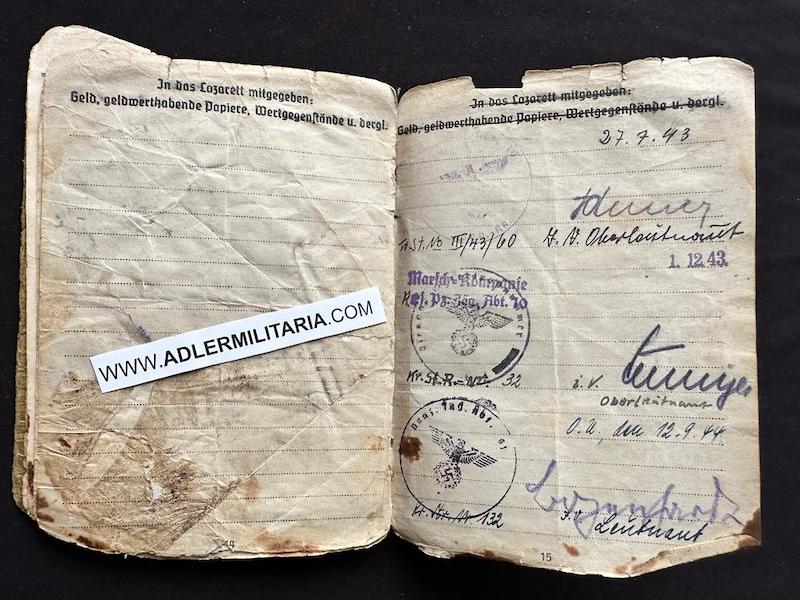 In das Lazarett mitgegeben:
Geld, geldwerthabende Papiere, Wertgegenstände u. dergl.
WWW.ADLERMILITARIA.COM
14
In das Lazarett mitgegeben:
Geld, geldwerthabende Papiere, Wertgegenstände u. dergl.
27.7.43
III/43/60
J. V. Oberleutnant
1. 12. 43.
Marsch-Kompanie
Pz. Jäg. Abt. 10
Kr. St. R.-Nr. 32
i. V.
Oberleutnant
O.U., den 12.9.44
Panz. Jäg. Abt. 61
132
Leutnant
15